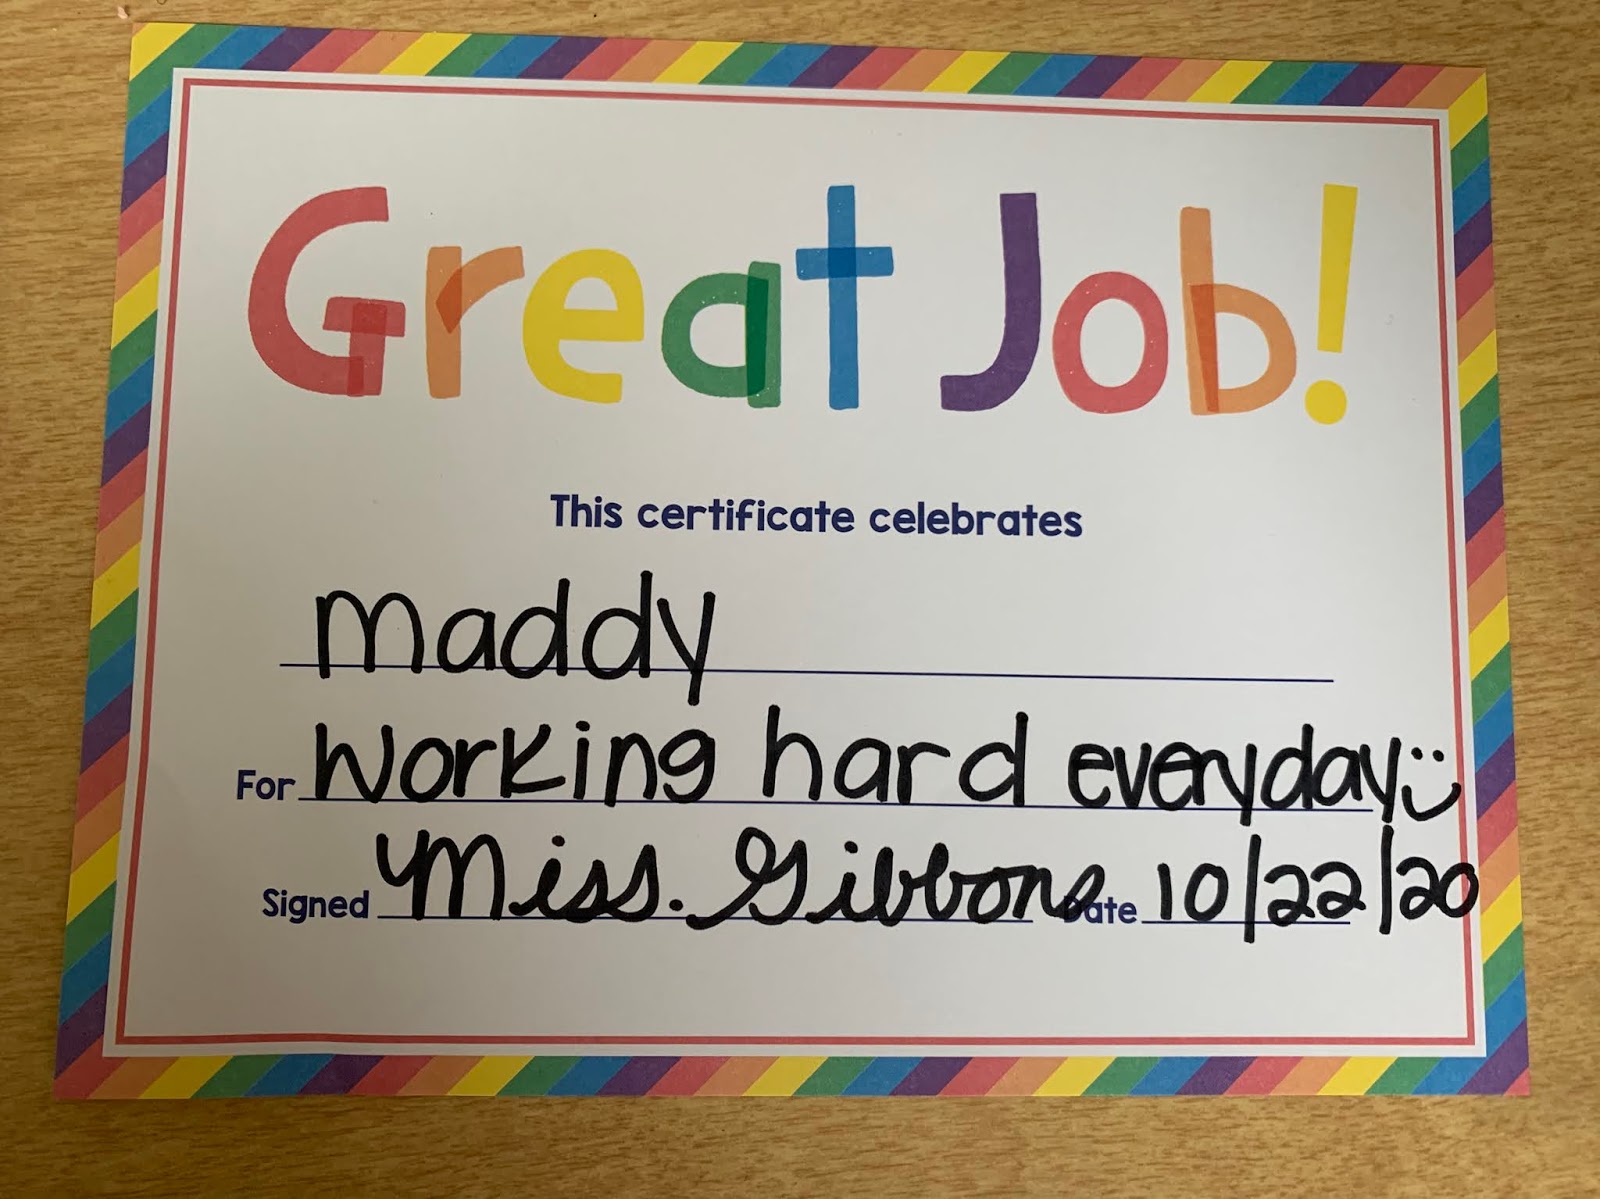 Great Job!
This certificate celebrates
Maddy
For Working hard everyday :)
Signed Miss. Gibbons Date 10/22/20